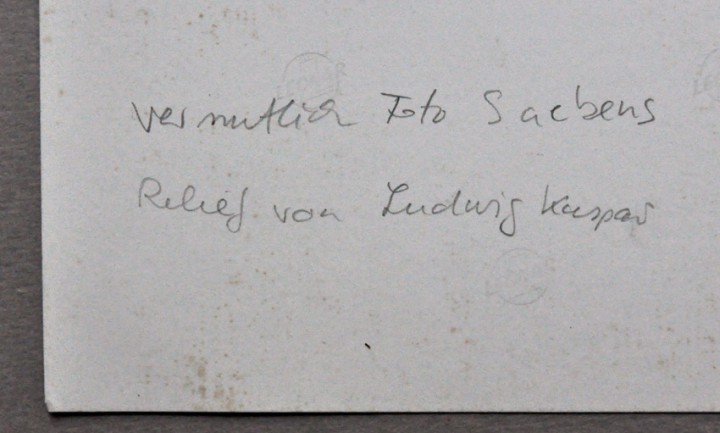 vermutlich Foto Saebens
Relief von Ludwig Kaspar